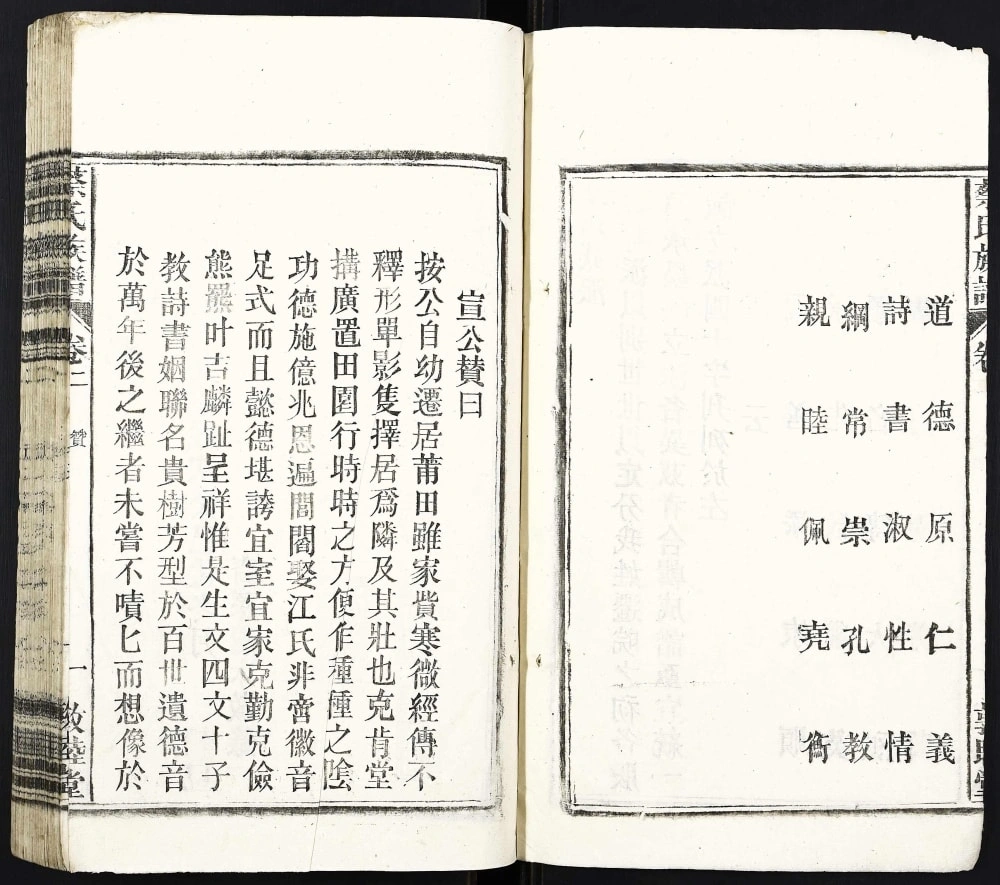 蔡氏族譜 卷
道德原仁義
詩書淑性情
綱常崇孔教
親睦佩堯衢
宣公賛曰
按公自幼遷居莆田雖家貲寒微經傳不
釋形單影隻擇居爲隣及其壯也克肯堂
搆廣置田園行時時之方便作種種之陰
功德施億兆恩遍閭閻娶江氏非啻徽音
足式而且懿德堪誇宜室宜家克勤克儉
熊羆叶吉麟趾呈祥惟是生文四文十子
教詩書姻聯名貴樹芳型於百世遺德音
於萬年後之繼者未嘗不嘖匕而想像於
蔡氏族譜 卷二 贊 一 敦睦堂